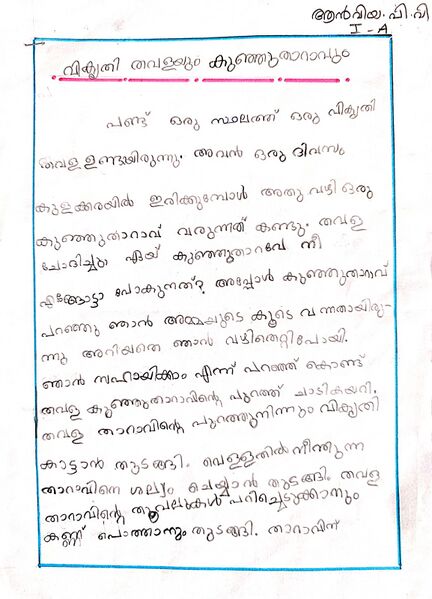 ആൻവിയ.പി.വി
I - A
വികൃതി തവളയും കുഞ്ഞുതാറാവും
പണ്ട് ഒരു സ്ഥലത്ത് ഒരു വികൃതി
തവള ഉണ്ടായിരുന്നു. അവൻ ഒരു ദിവസം
കുളക്കരയിൽ ഇരിക്കുമ്പോൾ അതു വഴി ഒരു
കുഞ്ഞുതാറാവ് വരുന്നത് കണ്ടു. തവള
ചോദിച്ചു ഏയ് കുഞ്ഞുതാറവേ നീ
എങ്ങോട്ടാ പോകുന്നത്? അപ്പോൾ കുഞ്ഞുതാറവ്
പറഞ്ഞു ഞാൻ അമ്മയുടെ കൂടെ വന്നതായിരു-
ന്നു അറിയതെ ഞാൻ വഴിതെറ്റിപോയി.
ഞാൻ സഹായിക്കാം എന്ന് പറഞ്ഞ് കൊണ്ട്
തവള കുഞ്ഞുതാറാവിന്റെ പുറത്ത് ചാടികയറി.
തവള താറാവിന്റെ പുറത്തുനിന്നും വികൃതി
കാട്ടാൻ തുടങ്ങി. വെള്ളതിൽ നീന്തുന്ന
താറാവിനെ ശല്യം ചെയ്യാൻ തുടങ്ങി. തവള
താറാവിന്റെ തൂവലുകൾ പറിച്ചെടുക്കാനും
കണ്ണ് പൊത്താനും തുടങ്ങി. താറാവിന്